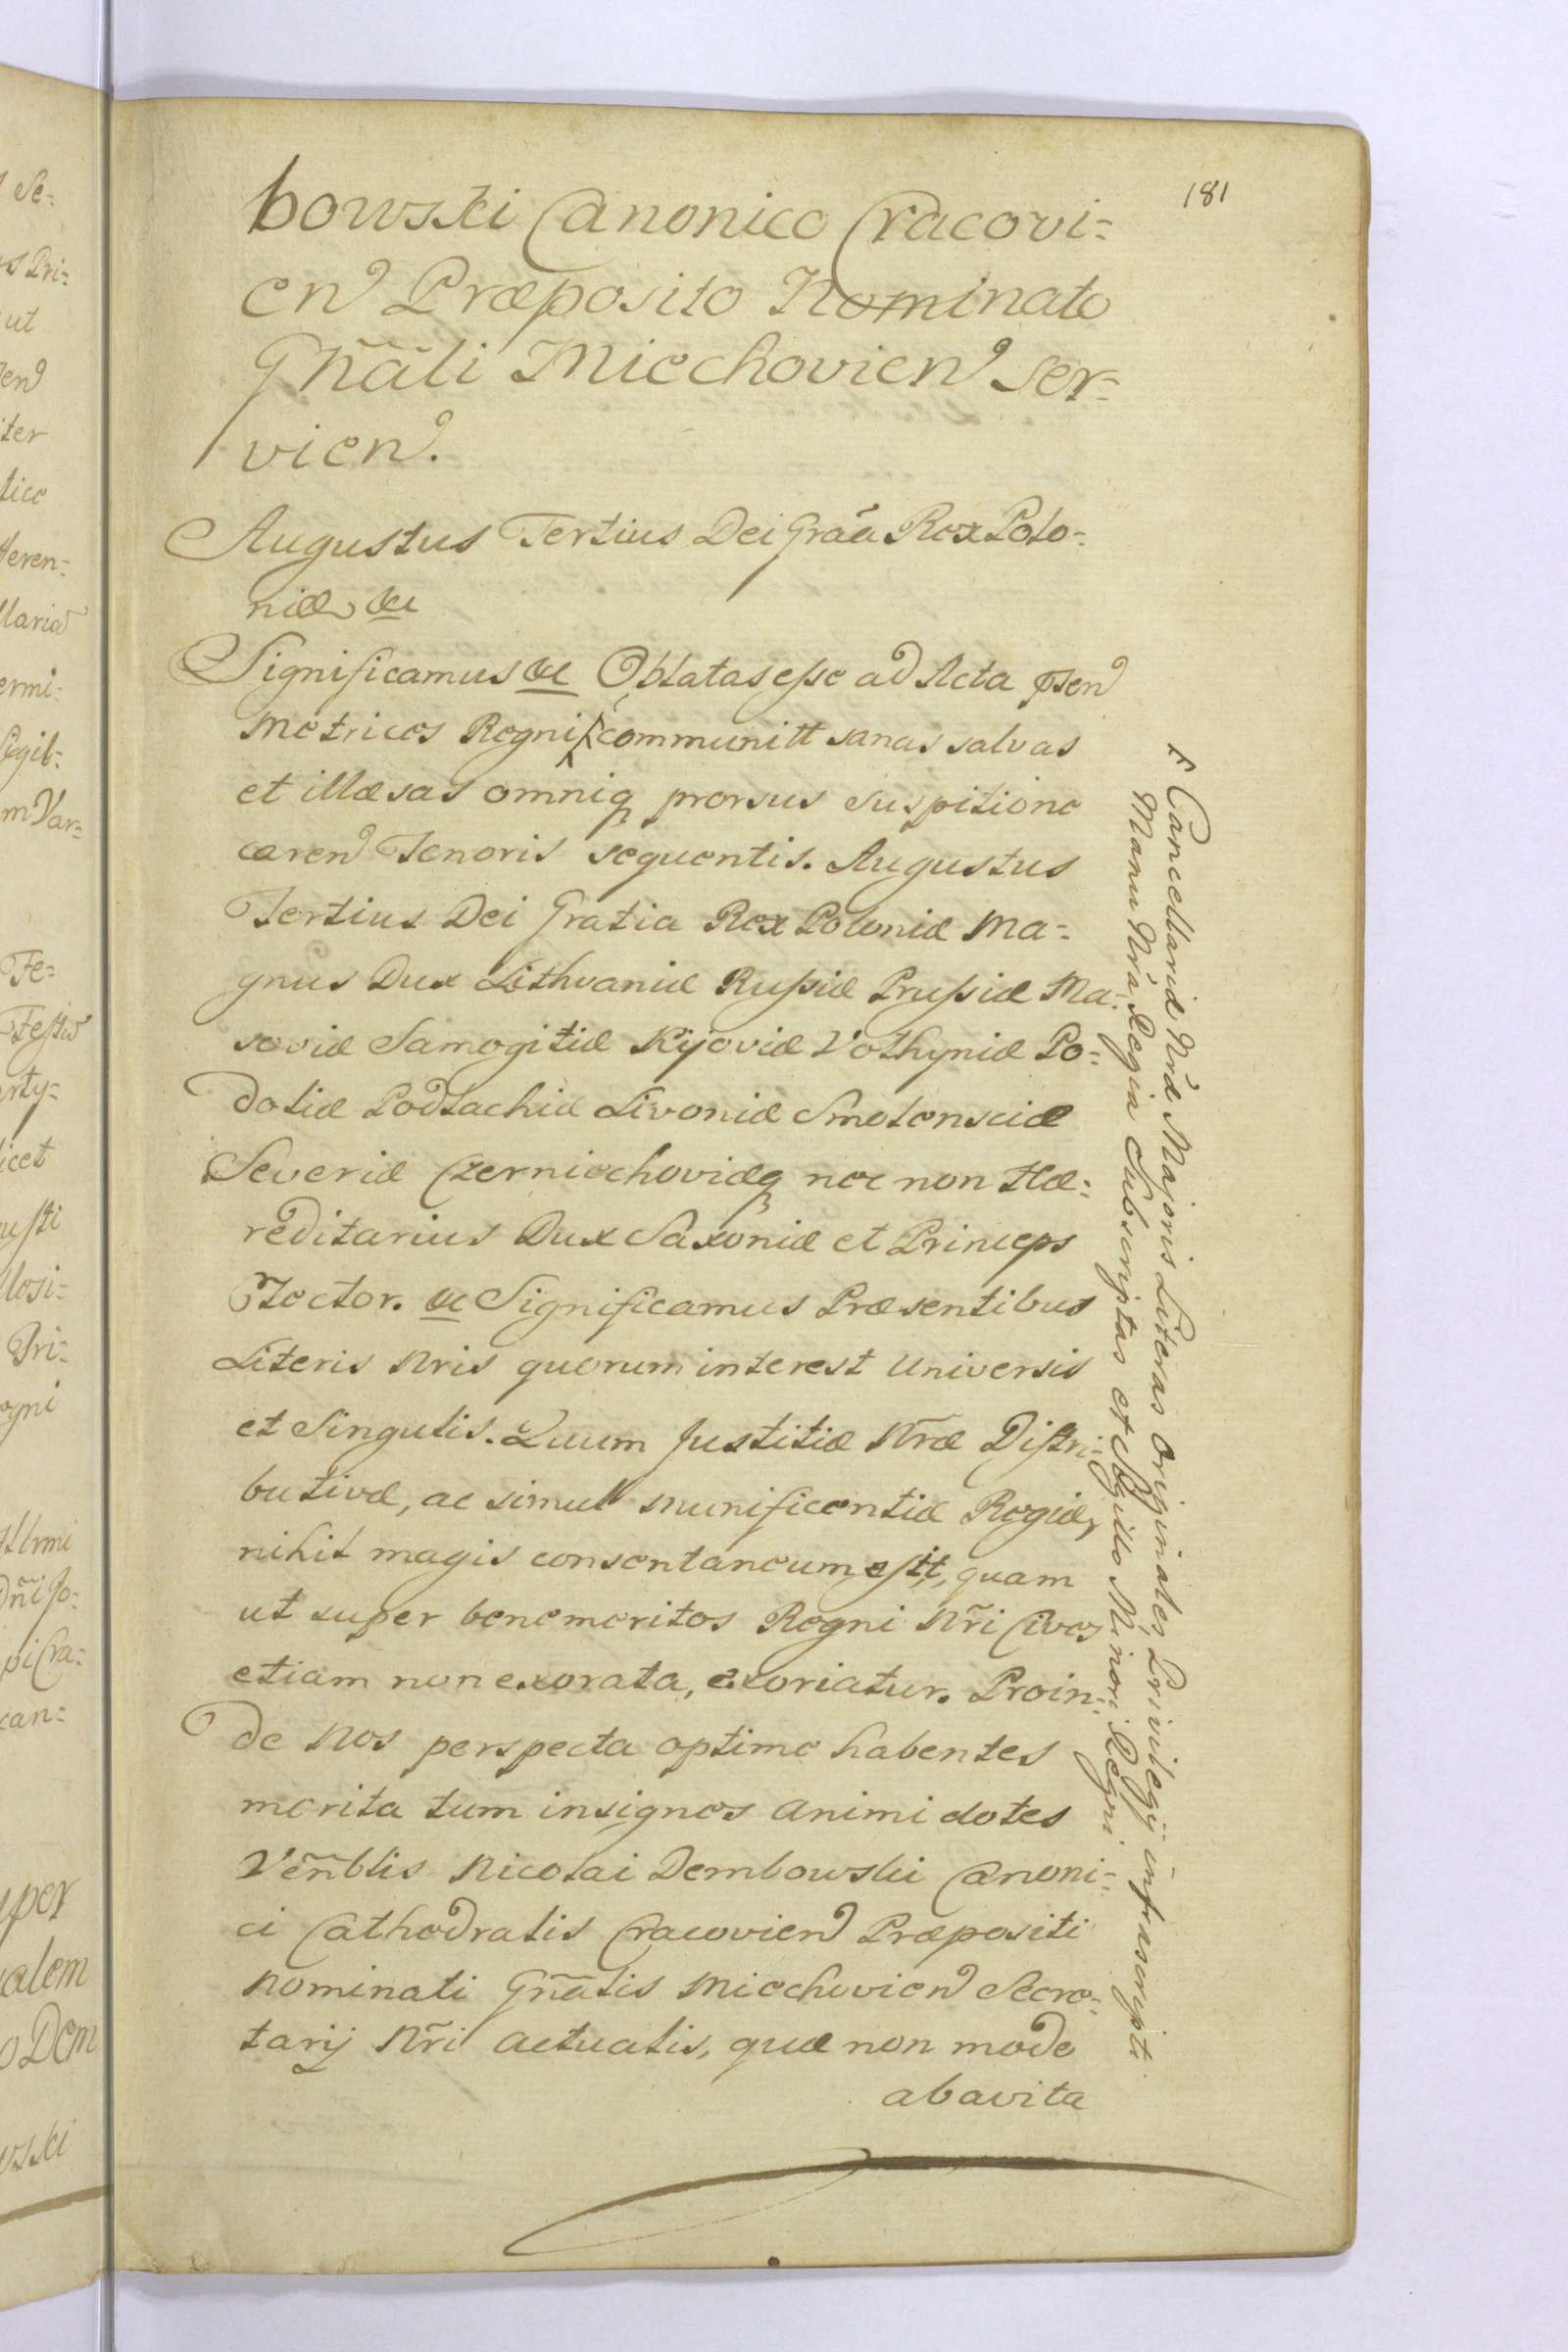 181
bowski Canonico Cracovi=
en Præposito Nominato
Gñãli Miechovien ser=
vien.
Augustus Tertius Dei Grãa Rex Polo=
niæ &c
Significamus &c Oblatas esse ad Acta psen
Metrices Regni communitt sanas salvas
et illæsas omniq prorsus suspitione
caren Tenoris sequentis. Augustus
Tertius Dei Gratia Rex Poloniæ Ma=
gnus Dux Lithvaniæ Russiæ Prussiæ Ma=
soviæ Samogitiæ Kijoviæ Volhyniæ Po=
doliæ Podlachiæ Livoniæ Smolensciæ
Severiæ Czerniechoviæq nec non Hæ=
reditarius Dux Saxoniæ et Princeps
Elector. &c Significamus Præsentibus
Literis Nris quorum interest Universis
et Singulis. Quum Justitiæ Nr̃æ Distri=
butivæ, ac simul munificentiæ Regiæ,
nihil magis consentaneum est, quam
ut super benemeritos Regni Nr̃i Cives
etiam non exorata, exoriatur. Proin=
de Nos perspecta optime habentes
merita tum insignes animi dotes
Veñblis Nicolai Dembowski Canoni=
ci Cathedralis Cracovien Præpositi
Nominati Gñalis Miechovien Secre=
tarij Nr̃i actualis, quæ non modo
ab avita
Cancellariæ Nræ Majoris Literas originales Privilegij infrascripti
Manu Nra Regia Subscriptas et Sigillo Minori Regni
Se=
s Pri=
ut
en
iter
tice
deren=
llaria
ermi=
Sigil=
m Var=
Te=
Testis
erty=
icet
usti
losi=
Pri=
egni
Dñi Jo=
pi Cra=
can=
uper
ualem
o Dem
wski